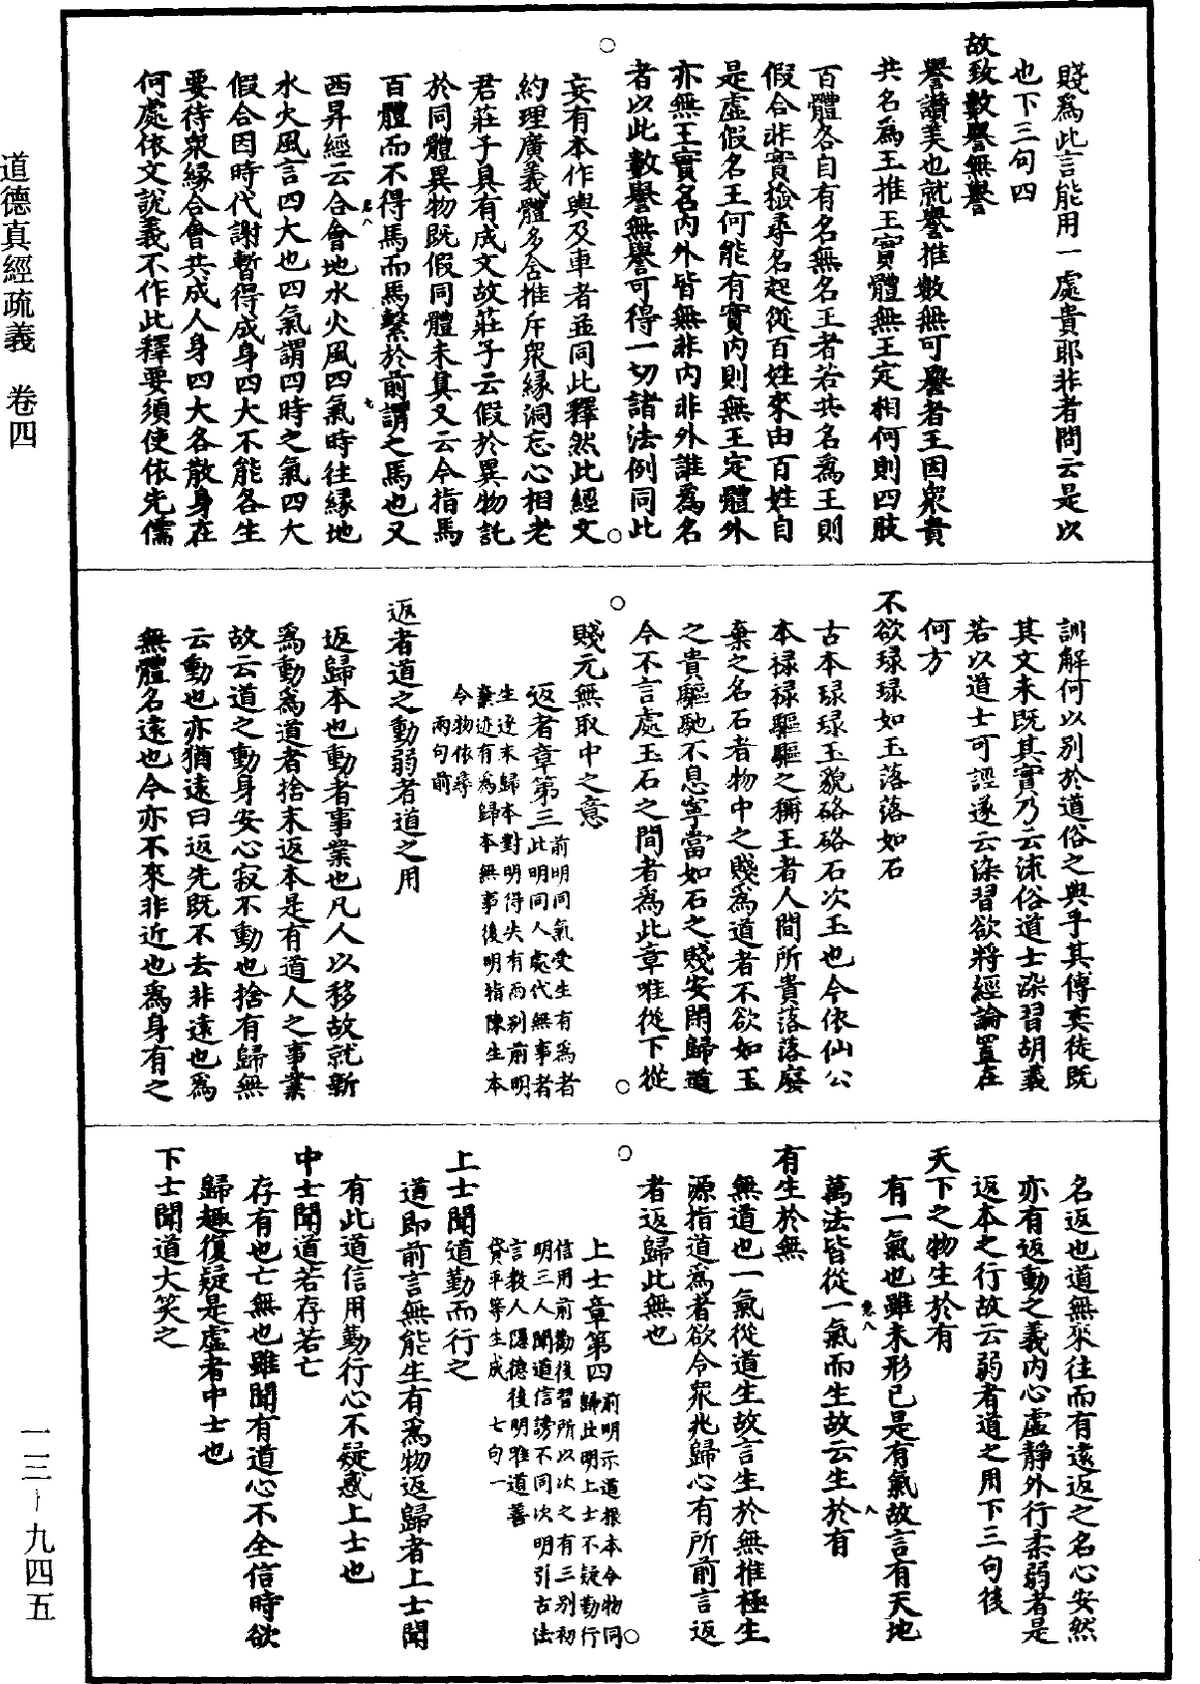 賤爲此言能用一處貴耶非者問云是以
也下三句四
故致數譽無譽
譽讚美也就譽推數無可譽者王因衆貴
共名爲王推王實體無王定相何則四肢
百體各自有名無名王者若共名爲王則
假合非實撿尋名起從百姓來由百姓自
是虛假名王何能有實内則無王定體外
亦無王實名内外皆無非内非外誰爲名
者以此數譽無譽可得一切諸法例同此
妄有本作輿及車者並同此釋然此經文
約理廣義體多含推斥衆緣洞忘心相老
君莊子具有成文故莊子云假於異物託
於同體異物既假同體未眞又云今指馬
百體而不得馬而馬繫於前謂之馬也又
西昇經云合會地水火風四氣時往緣地
水火風言四大也四氣謂四時之氣四大
假合因時代謝暫得成身四大不能各生
要待衆緣合會共成人身四大各散身在
何處依文說義不作此釋要須使依先儒
訓解何以別於道俗之典乎其傅奕徒既
其文未既其實乃云流俗道士染習胡義
若以道士可誣遂云染習欲將經論置在
何方
不欲琭琭如玉落落如石
古本琭琭玉貌硌硌石次玉也今依仙公
本祿祿驅驅之稱王者人間所貴落落廢
棄之名石者物中之賤爲道者不欲如玉
之貴驅馳不息寧當如石之賤安閑歸道
今不言處玉石之間者爲此章唯從下從
賤元無取中之意
返者章第三前明同氣受生有爲者
此明同人處代無事者
生逐末歸本對明得失有兩別前明
棄迹有爲歸本無事後明指陳生本
令物依尋
兩句前
返者道之動弱者道之用
返歸本也動者事業也凡人以移故就新
爲動爲道者捨末返本是有道人之事業
故云道之動身安心寂不動也捨有歸無
云動也亦猶遠曰返先既不去非遠也爲
無體名遠也今亦不來非近也爲身有之
名返也道無來往而有遠返之名心安然
亦有返動之義内心虛靜外行柔弱者是
返本之行故云弱者道之用下三句後
天下之物生於有
有一氣也雖未形已是有氣故言有天地
萬法皆從一氣而生故云生於有
有生於無
無道也一氣從道生故言生於無推極生
源指道爲者欲令衆兆歸心有所前言返
者返歸此無也
上士章第四前明示道根本令物同
歸此明上士不疑勤行
信用前勸後習所以次之有三別初
明三人聞道信謗不同次明引古法
言教人隱德後明唯道善
貸平等生成七句一
上士聞道勤而行之
道即前言無能生有爲物返歸者上士聞
有此道信用勤行心不疑惑上士也
中士聞道若存若亡
存有也亡無也雖聞有道心不全信時欲
歸趣復疑是虛者中士也
下士聞道大笑之
道德真經疏義 卷四
一三－九四五